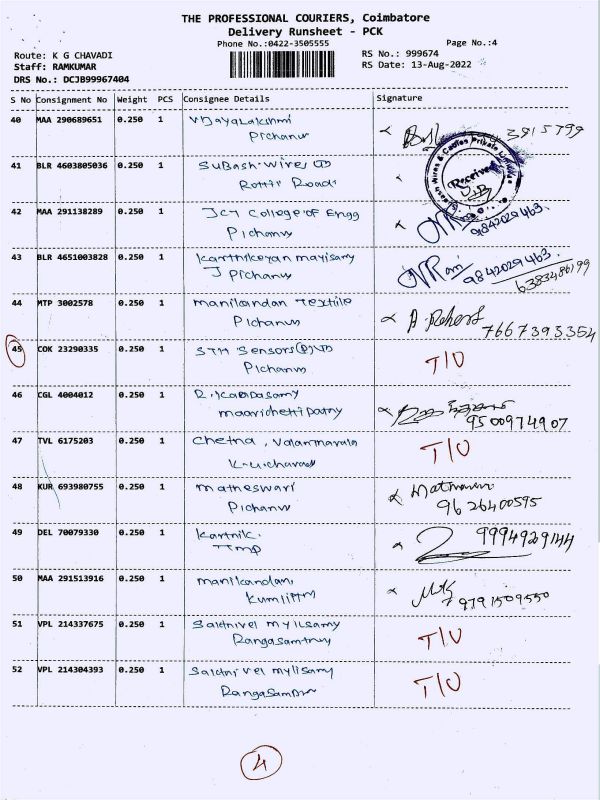 THE PROFESSIONAL COURIERS, Coimbatore
Delivery Runsheet - PCK
Phone No.:0422-3505555
Page No.:4
Route: K G CHAVADI
RS No.: 999674
Staff: RAMKUMAR
RS Date: 13-Aug-2022
DRS No.: DCJB99967404
S No Consignment No Weight PCS Consignee Details Signature
40 MAA 290689651 0.250 1 Vijayalakshmi
Pichanur
41 BLR 4603805036 0.250 1 Subash wires
Road
Received
42 MAA 291138289 0.250 1 JCT College of Engg
Pichanur 9842029463
43 BLR 4651003828 0.250 1 Karthikeyan mayisamy
J Pichanur 9842029463
6383486199
44 MTP 3002578 0.250 1 manikandan Textile
Pichanur 7667393354
45 COK 23290335 0.250 1 STM Sensors (P) LTD T/U
Pichanur
46 CGL 4004012 0.250 1
9500974907
47 TVL 6175203 0.250 1 Chetna, T/U
K.G.chavadi
48 KUR 693980755 0.250 1 matheswari
Pichanur 9626400595
49 DEL 70079330 0.250 1 Kartnik. 9994929144
50 MAA 291513916 0.250 1 manikandan,
9791509550
51 VPL 214337675 0.250 1 Saktnivel mylisamy T/U
52 VPL 214304393 0.250 1 Saktnivel mylisamy T/U
4